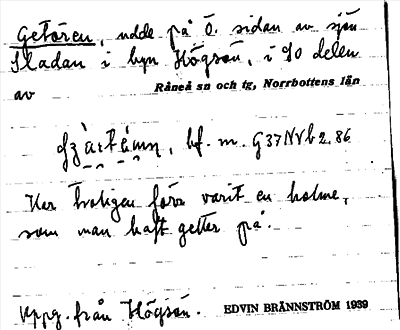 Getören, udde på Ö. sidan av sjön
Sladan i byn Högsön, i SO delen
av
Råneå sn och tg, Norrbottens län
bf. m. G37NVb2.86
Har troligen förr varit en holme,
som man haft getter på.
Uppg. från Högsön.
EDVIN BRÄNNSTRÖM 1939